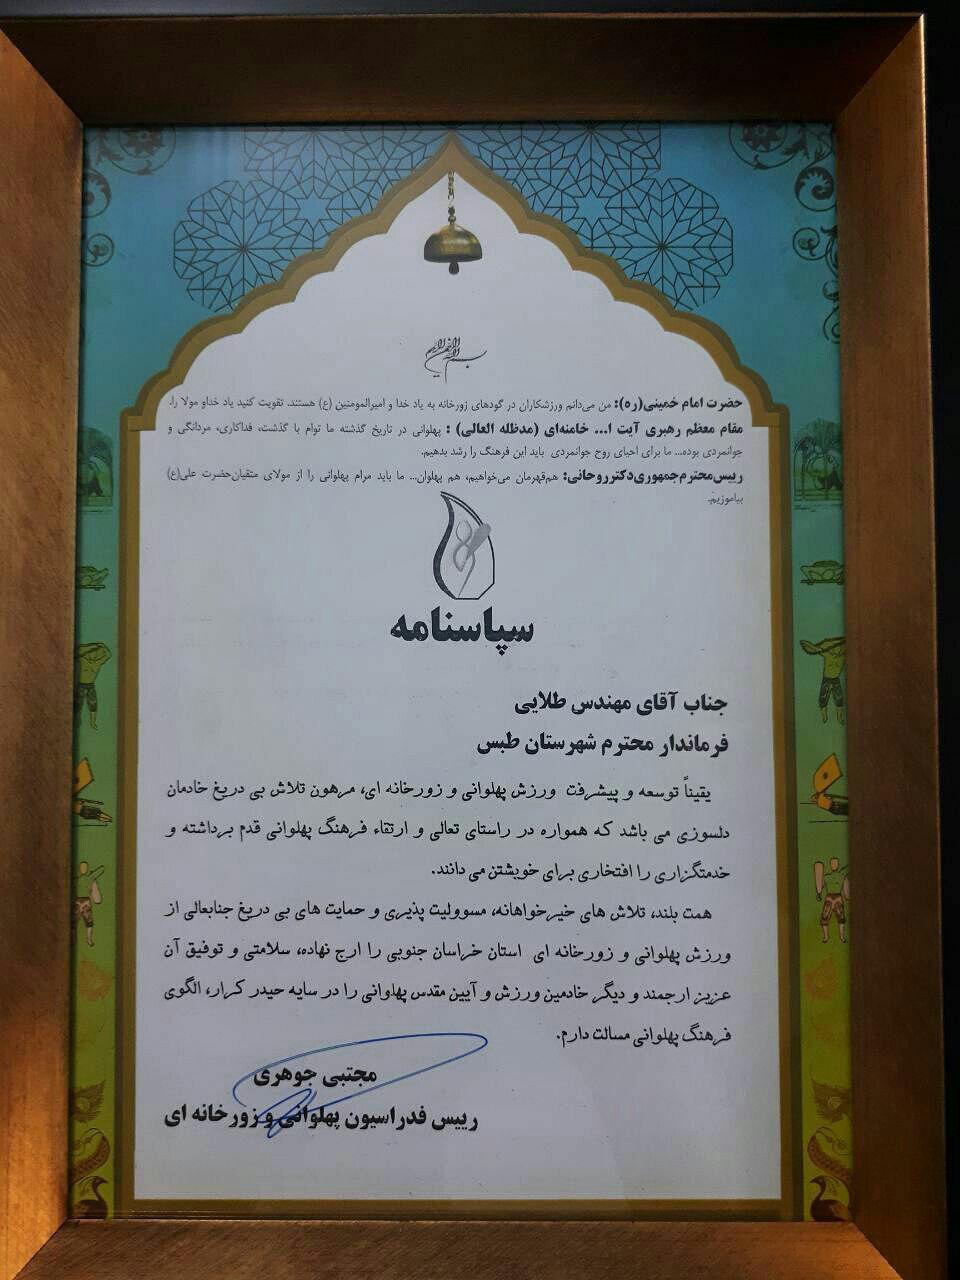 بسم الله الرحمن الرحیم
حضرت امام خمینی(ره): من می‌دانم ورزشکاران در گودهای زورخانه به یاد خدا و امیرالمومنین (ع) هستند. تقویت کنید یاد خداو مولا را.
مقام معظم رهبری آیت ا... خامنه‌ای (مدظله العالی) : پهلوانی در تاریخ گذشته ما توام با گذشت، فداکاری، مردانگی و
جوانمردی بوده... ما برای احیای روح جوانمردی باید این فرهنگ را رشد بدهیم.
رییس‌محترم‌جمهوری‌دکترروحانی: هم‌قهرمان می‌خواهیم، هم پهلوان... ما باید مرام پهلوانی را از مولای متقیان‌حضرت علی(ع)
بیاموزیم.
سپاسنامه
جناب آقای مهندس طلایی
فرماندار محترم شهرستان طبس
یقیناً توسعه و پیشرفت ورزش پهلوانی و زورخانه ای، مرهون تلاش بی دریغ خادمان
دلسوزی می باشد که همواره در راستای تعالی و ارتقاء فرهنگ پهلوانی قدم برداشته و
خدمتگزاری را افتخاری برای خویشتن می دانند.
همت بلند، تلاش های خیرخواهانه، مسوولیت پذیری و حمایت های بی دریغ جنابعالی از
ورزش پهلوانی و زورخانه ای استان خراسان جنوبی را ارج نهاده، سلامتی و توفیق آن
عزیز ارجمند و دیگر خادمین ورزش و آیین مقدس پهلوانی را در سایه حیدر کرار، الگوی
فرهنگ پهلوانی مسالت دارم.
مجتبی جوهری
رییس فدراسیون پهلوانی و زورخانه ای